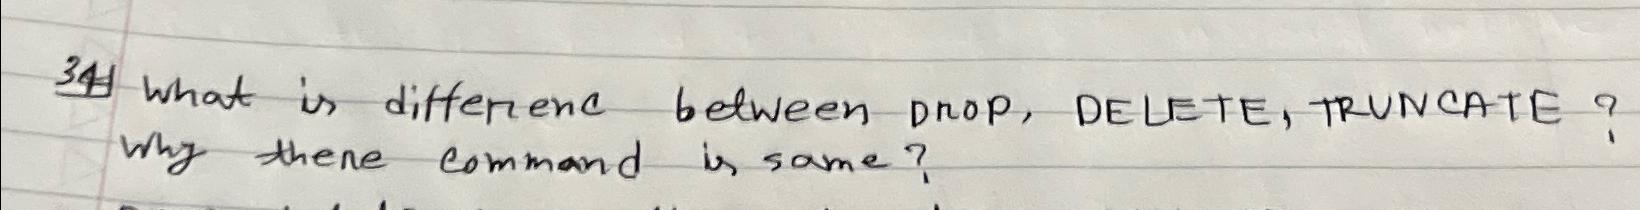 34) What is differenc between DROP, DELETE, TRUNCATE ?
Why there command is same ?